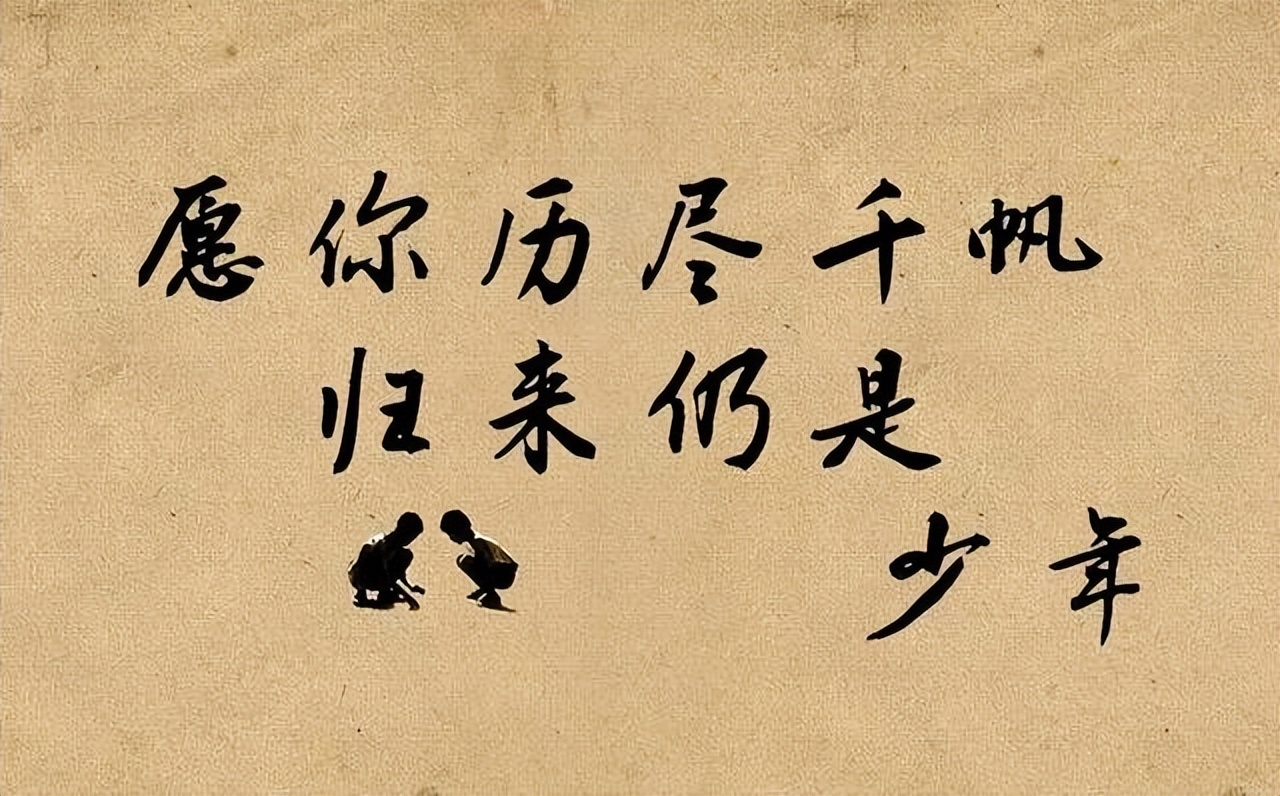 愿你历尽千帆
归来仍是
少年